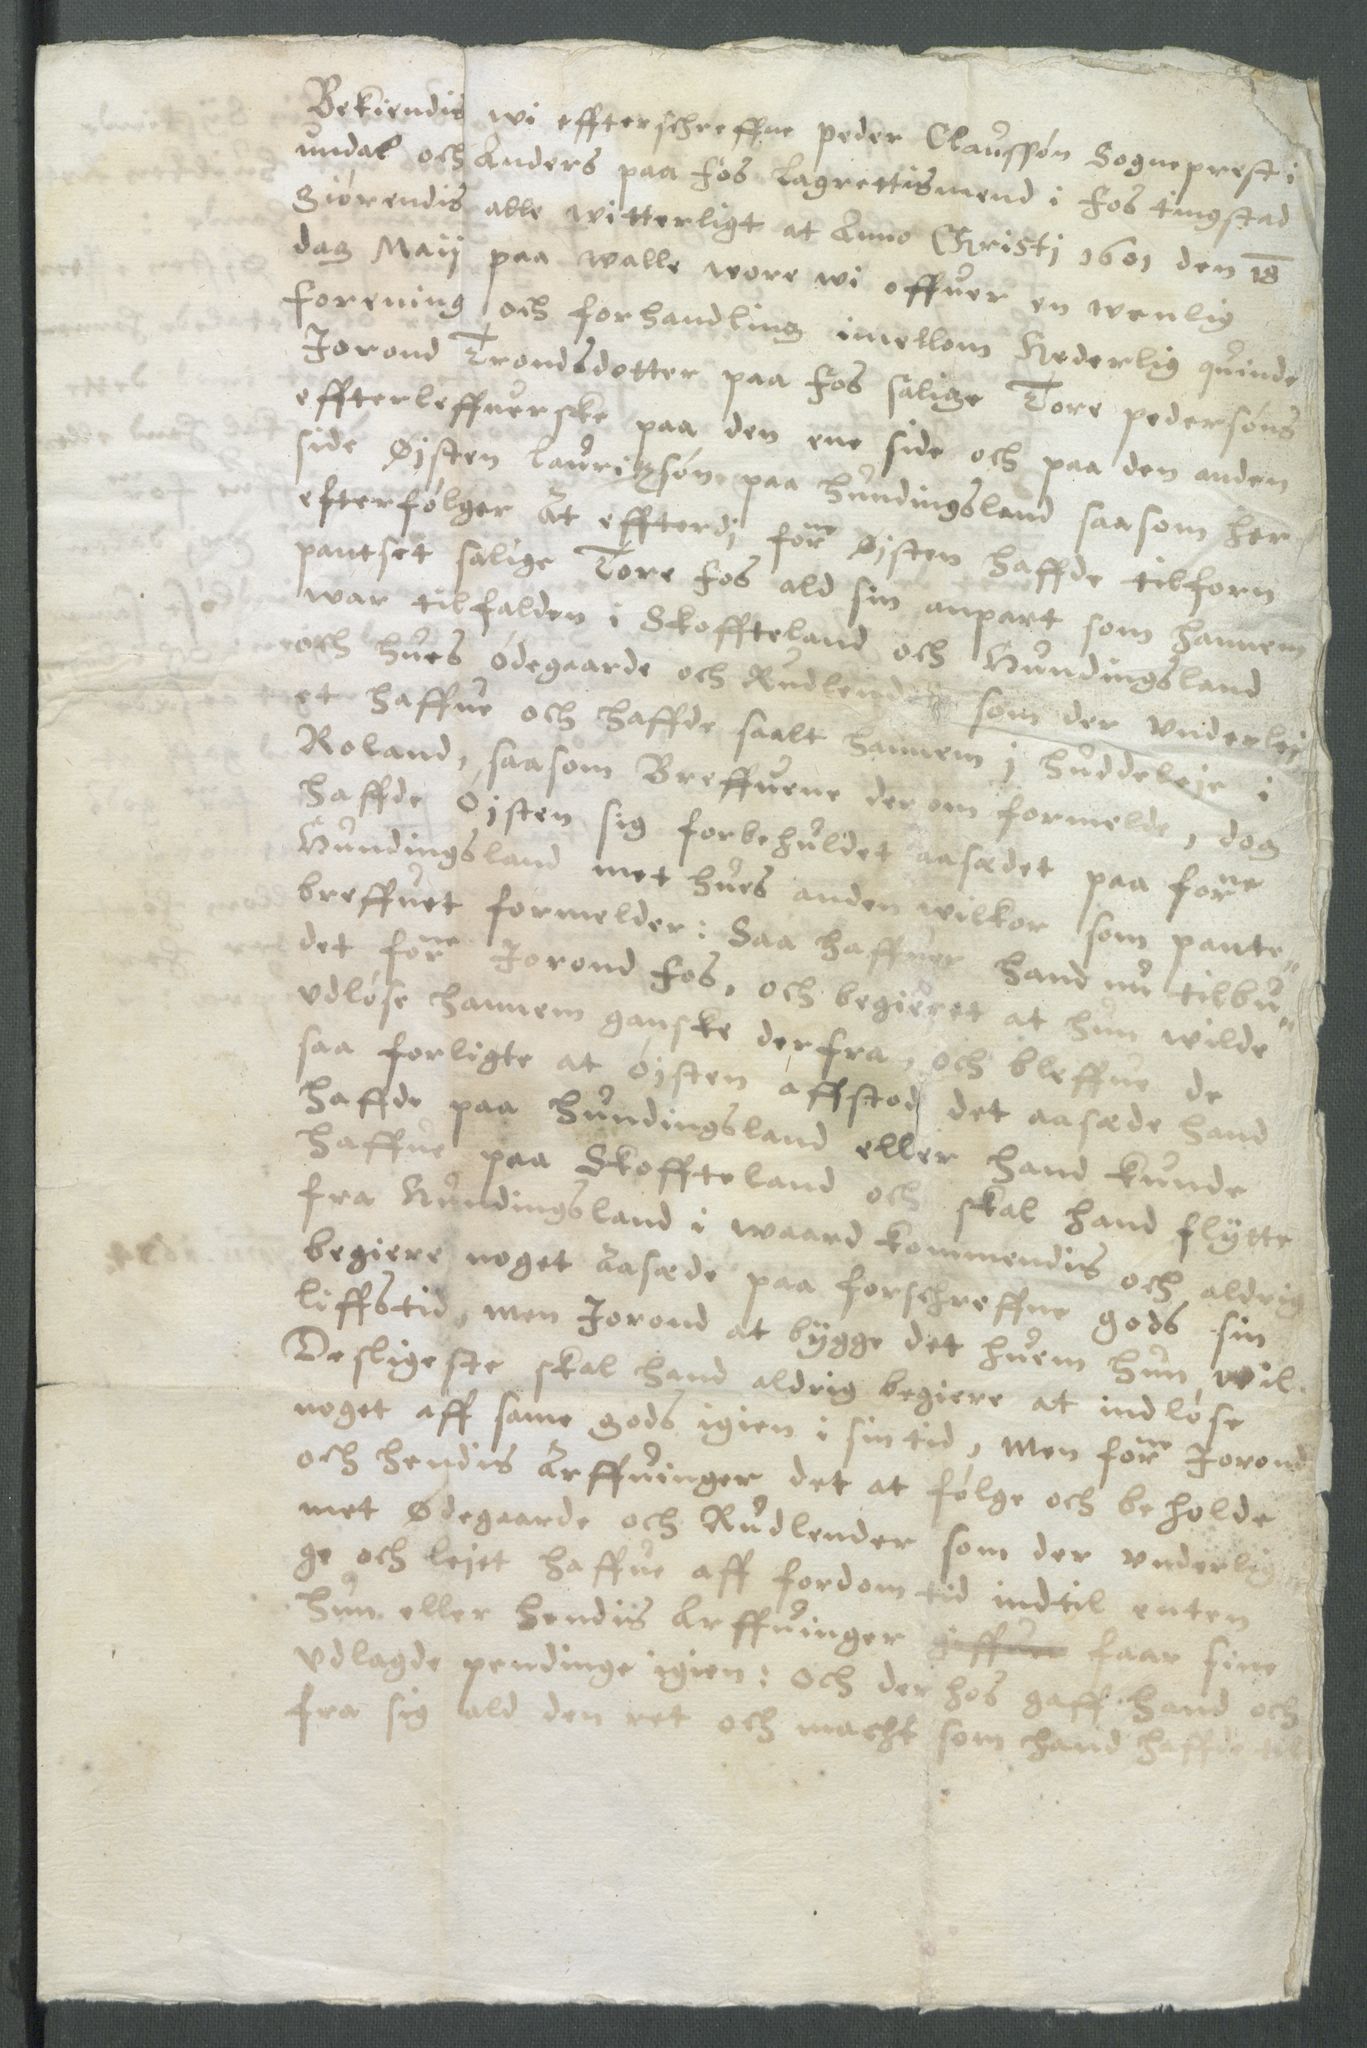 Bekiendis wi effterschreffne peder Claussøn Sogneprest i
undal och Anders paa fos lagrettismend i fos tingstad
Giørendis alle witterligt at Anno Christj 1601 den 18
dag Maij paa walle wore wi offuer en wenlig
forening och forhandling imellom Hederlig quinde
Jorond Trondsdotter paa fos salige Tore pedersøns
effterleffuerske paa den ene side och paa den anden
side Øisten lauritzsøn paa hundingsland saasom her
efterfølger At effterdj forne Øisten haffde tilforn
pantset salige Tore fos ald sin anpart som hannem
war tilfalden i Skoffteland och Hundingsland
och hues ødegaarde och Rudlender som der underlej
et haffue och haffde saalt hannem j huddeleje i
Roland, saasom Breffuene der om formelde, dog
haffde Øjsten sig forbehuldet aasædet paa forne
Hundingsland met hues anden wilkor som pante„
breffuet formelder: Saa haffuer hand nu tilbu„
det forne Jorond fos, och begieret at hun wilde
udløse hannem ganske derfra, och bleffue de
saa forligte at øjsten affstod det aasæde hand
haffde paa hundingsland eller hand kunde
haffue paa Skoffteland och skal hand flytte
fra Hundingsland i waard kommendis och aldrig
begiere noget Aasæde paa forschreffne gods sin
liffstid, men Jorond at bygge det huem hun wil.
Desligeste skal hand aldrig begiere at indløse
noget aff same gods igien i sin tid, Men forne Jorond
och hendis Arffuinger det at følge och beholde
met Ødegaarde och Rudlender som der underlig
ge och lejet haffue aff fordom tid indtil enten
hun eller hendis Arffuinger giffuer faar sine
udlagde pendinge igien: Och der hos gaff hand och
fra sig ald den ret och macht som hand haffde til